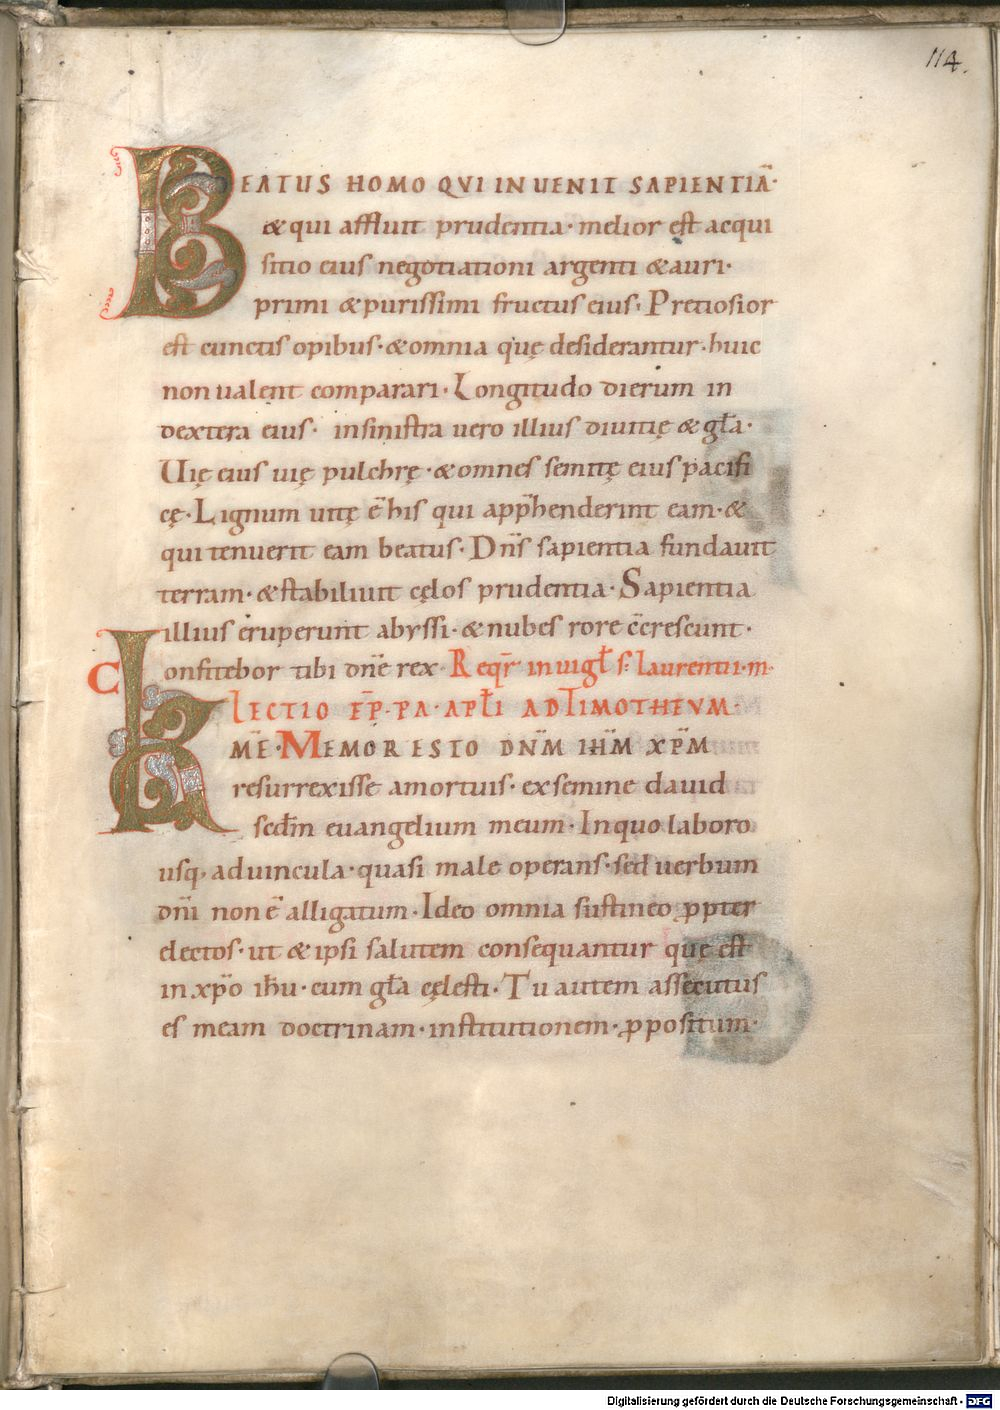 114.
BEATUS HOMO QVI INUENIT SAPIENTIA̅·
& qui affluit prudentia· melior est acqui
sitio eius negotiationi argenti & auri·
primi & purissimi fructus eius· Pretiosior
est cunctis opibus· & omnia quę desiderantur· huic
non ualent comparari· Longitudo dierum in
dextera eius· in sinistra uero illius diuitię & gl̅a·
Uię eius uię pulchrę· & omnes semitę eius pacifi
cę· Lignum uitę e̅ his qui app̅henderint eam· &
qui tenuerit eam beatus· Dn̅s sapientia fundauit
terram· & stabiliuit cęlos prudentia· Sapientia
illius eruperunt abyssi· & nubes rore c̅crescunt·
Confitebor tibi dn̅e rex· Reqr̅ in uigl̅ s· laurentii· m·
LECTIO EP̅· PA· APL̅I AD TIMOTHEVM·
KME̅· MEMOR ESTO DN̅M IHM̅ XP̅M
resurrexisse a mortuis· ex semine dauid
secdm̅ euangelium meum· In quo laboro
usq· ad uincula· quasi male operans· sed uerbum
dn̅i non e̅ alligatum· Ideo omnia sustineo ꝓpter
electos· ut & ipsi salutem consequantur quę est
in xp̅o ih̅u· cum gl̅a cęlesti· Tu autem assecutus
es meam doctrinam· institutionem· ꝓpositum·
Digitalisierung gefördert durch die Deutsche Forschungsgemeinschaft - DFG